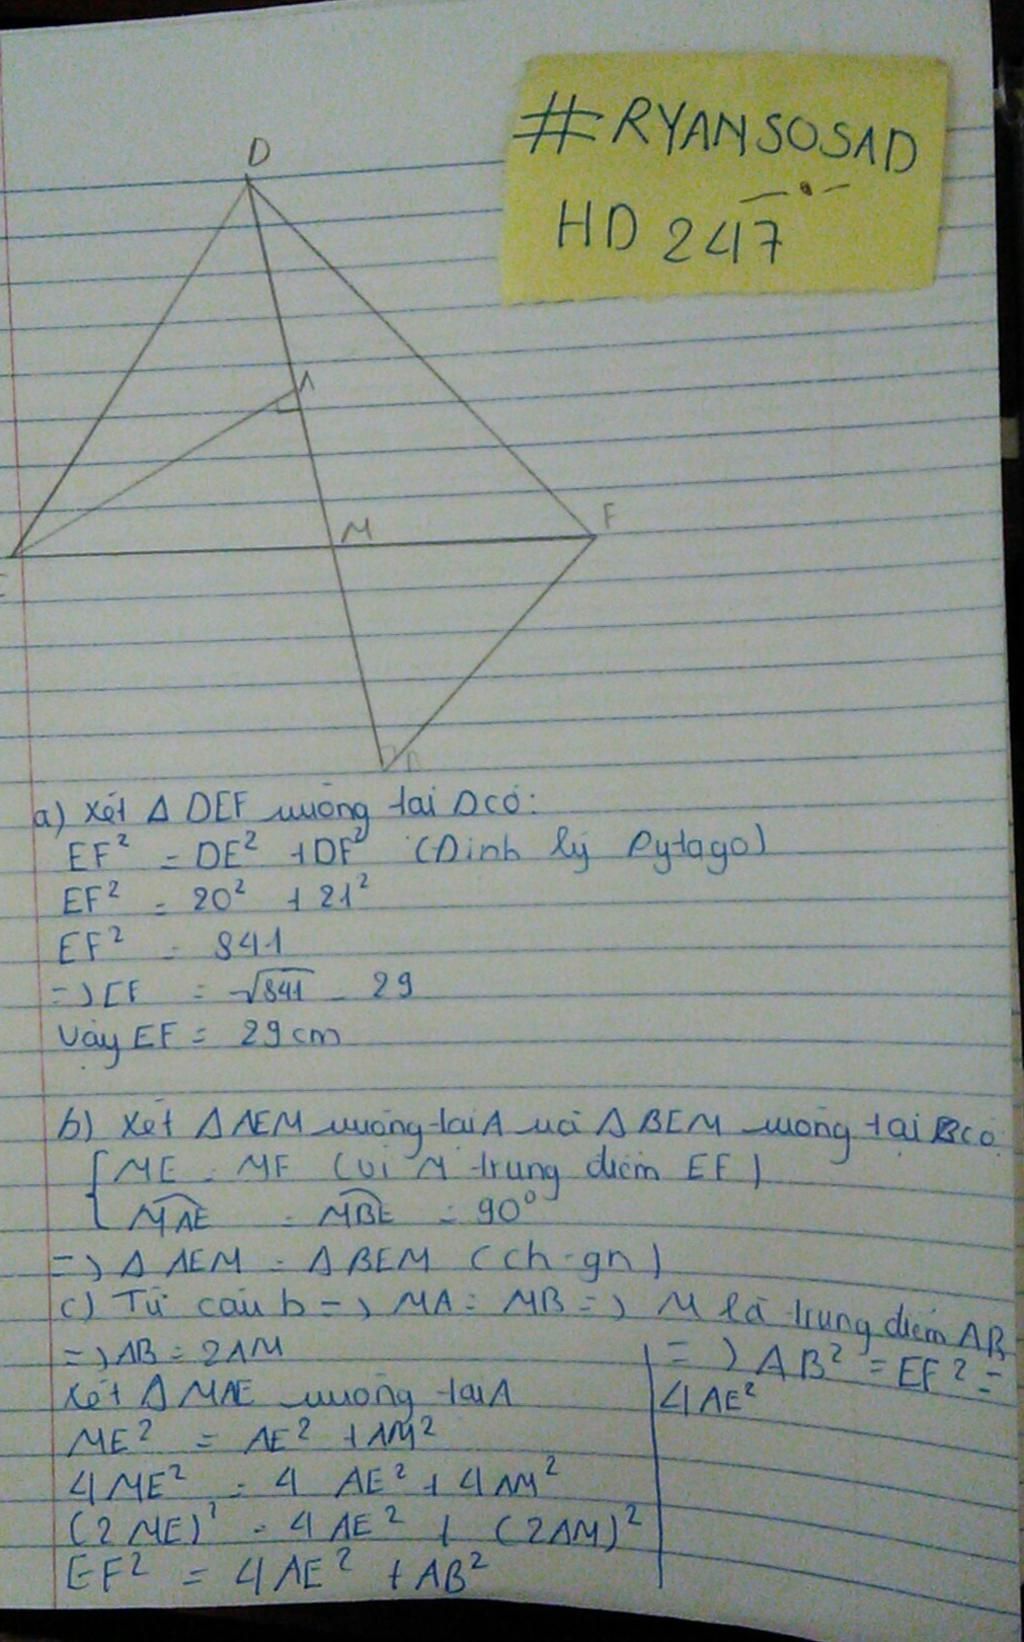 #RYANSOSAD
HD 247
D
A
M
F
E
B
a) Xét Δ DEF vuông tại D có:
EF² = DE² + DF² (Định lý Pytago)
EF² = 20² + 21²
EF² = 841
=> EF = √841 = 29
Vậy EF = 29 cm
b) Xét Δ AEM vuông tại A và Δ BEM vuông tại B có
ME = MF (vì M trung điểm EF)
MAE = MBE = 90°
=> Δ AEM = Δ BEM (ch-gn)
c) Từ câu b => MA = MB => M là trung điểm AB
=> AB = 2AM
Xét Δ MAE vuông tại A
ME² = AE² + AM²
4ME² = 4 AE² + 4AM²
(2ME)² = 4AE² + (2AM)²
EF² = 4AE² + AB²
=> AB² = EF² =
4AE²